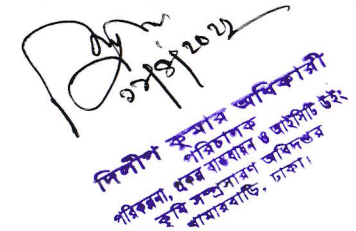 ২৭/৪/২০২২
দিলীপ কুমার অধিকারী
পরিচালক
পরিকল্পনা, প্রকল্প বাস্তবায়ন ও আইসিটি উইং
কৃষি সম্প্রসারণ অধিদপ্তর
খামারবাড়ি, ঢাকা।